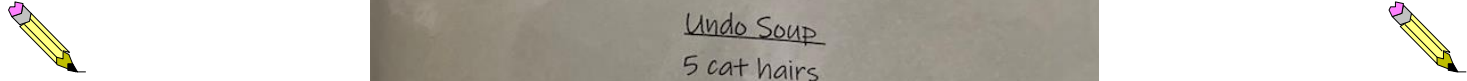 Undo Soup
5 cat hairs